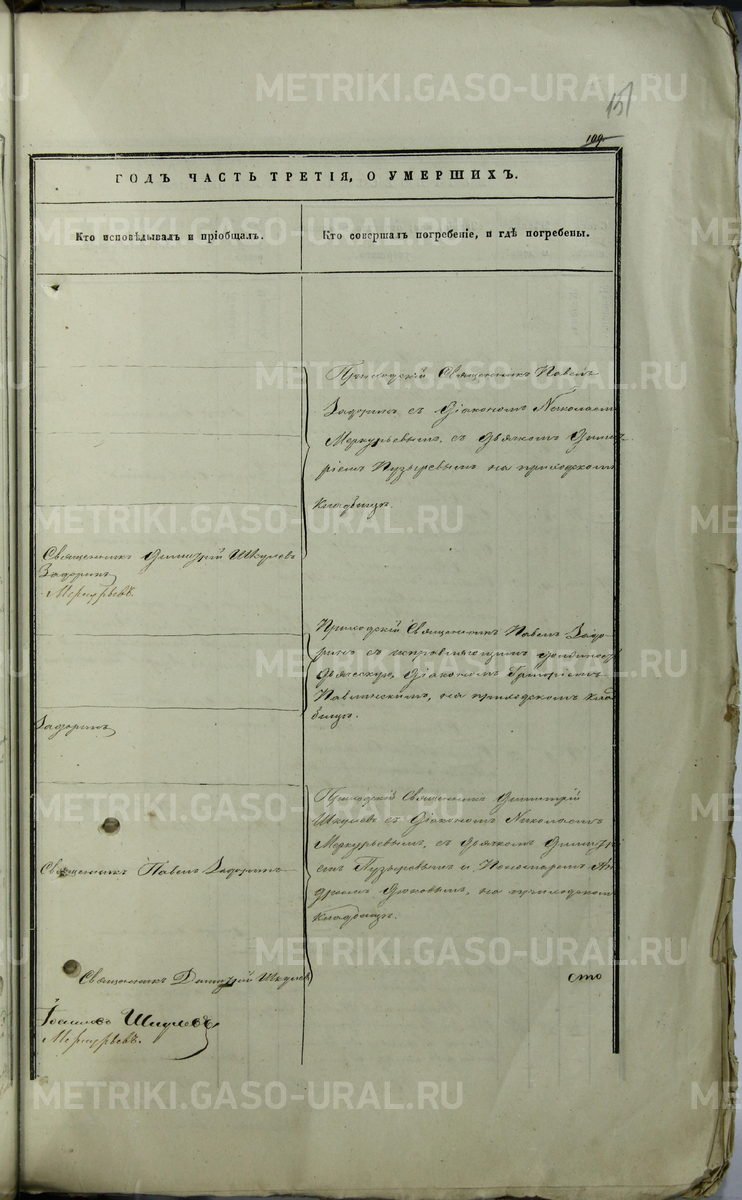 METRIKI.GASO-URAL.RU
151
109
ГОДЪ ЧАСТЬ ТРЕТІЯ, О УМЕРШИХЪ.
Кто исповѣдывалъ и пріобщалъ.
Кто совершалъ погребеніе, и гдѣ погребены.
Приходскій Священникъ Павелъ
Задоринъ съ Діакономъ Николаемъ
Меркурьевымъ, съ Дьячкомъ Димит
ріемъ Пузыревымъ на приходскомъ
кладбищѣ.
Священникъ Димитрій Шкулевъ
Задоринъ
Меркурьевъ
Приходскій Священникъ Павелъ Задо-
ринъ съ исправляющимъ должность
Дьяческую, Діакономъ Григоріемъ
на приходскомъ клад
бищѣ.
Задоринъ
Приходскій Священникъ Димитрій
Шкулевъ съ Діакономъ Николаемъ
Меркурьевымъ, съ Дьячкомъ Димитрі
емъ Пузыревымъ и Пономаремъ Ан
дреемъ на приходскомъ
кладбищѣ.
Священникъ Павелъ Задоринъ
Священникъ Димитрій Шкулев
сто
Шкулевъ
Меркурьевъ.